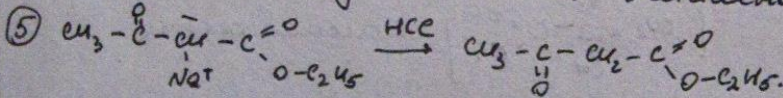 ⑤ CH₃-C(=O)-C̄H(Na⁺)-C(=O)-O-C₂H₅ →(HCl) CH₃-C(=O)-CH₂-C(=O)-O-C₂H₅.